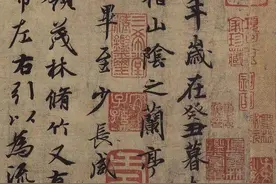 年歲在癸丑暮
稽山陰之蘭亭
畢至少長咸
領茂林脩竹又有
帶左右引以為流